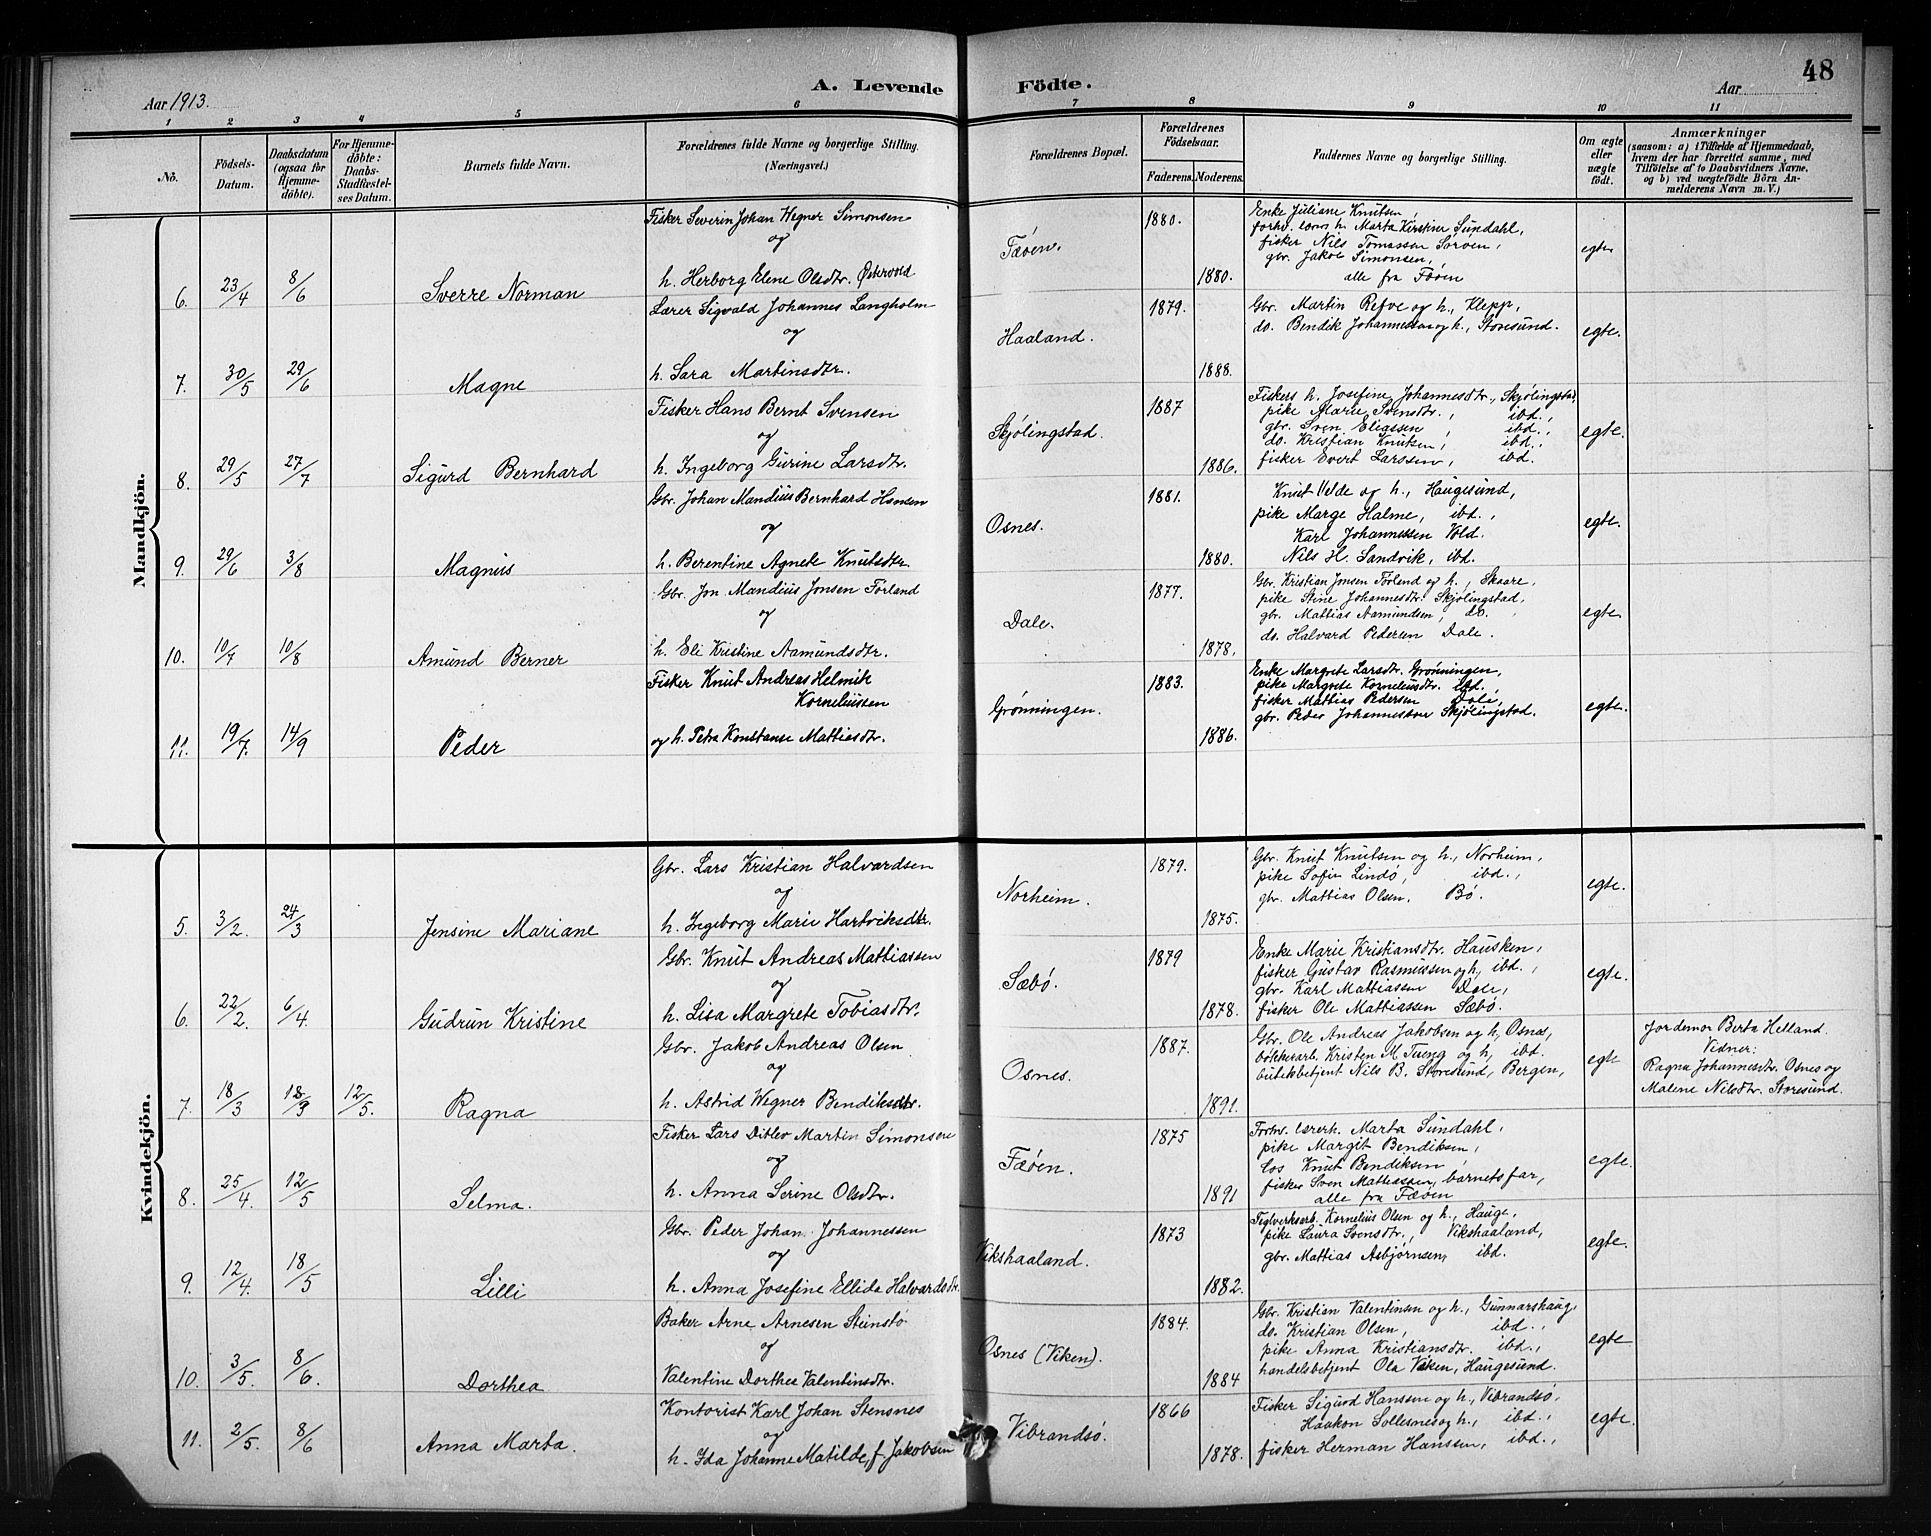 48
Aar 1913.
A. Levende Födte.
Aar
1 2 3 4 5 6 7 8 9 10 11
No.
Födsels-Datum.
Daabsdatum (ogsaa for Hjemme-döbte).
For Hjemme-döbte: Daabs-Stadfæstel-ses Datum.
Barnets fulde Navn.
Forældrenes fulde Navne og borgerlige Stilling. (Næringsvei.)
Forældrenes Bopæl.
Forældrenes Födselsaar.
Faderens. Moderens.
Faddernes Navne og borgerlige Stilling.
Om ægte eller uægte födt.
Anmærkninger
(saasom: a) i Tilfælde af Hjemmedaab, hvem der har forrettet samme, med Tilföielse af to Daabsvidners Navne, og b) ved uægtefödte Börn An-melderens Navn m. V.)
Mandkjön.
6. 23/4 8/6 Sverre Norman
Fisker Severin Johan Wegner Simonsen
og
h. Herborg Elene Olsdtr. Østervold
Fæøen. 1880. 1880.
Enke Juliane Knutsen,
forhv. lærer h. Marta Kirstine Sundahl,
fisker Nils Tomassen Sørøen,
gbr. Jakob Simonsen,
alle fra Føøen
egte
7. 30/5 29/6 Magne
Lærer Sigvald Johannes Langholm
og
h. Sara Martinsdtr.
Haaland. 1879. 1888.
Gbr. Martin Refve og h., Klepp,
do. Bendik Johannessen og h., Storesund.
egte.
8. 29/5 27/7 Sigurd Bernhard
Fisker Hans Bernt Svensen
og
h. Ingeborg Gurine Larsdtr.
Skjølingstad. 1887 1886.
Fiskers h. Josefine Johannesdtr., Skjølingstad,
pike Marie Svensdtr., ibd.,
gbr. Sven Eliassen, ibd.,
do. Kristian Knutsen, ibd.,
fisker Evert Larssen, ibd.
egte.
9. 29/6 3/8 Magnus
Gbr. Johan Mandius Bernhard Hansen
og
h. Berentine Agnete Knutsdtr.
Osnes. 1881. 1880.
Knut Velde og h., Haugesund,
pike Marge Halme, ibd.,
Karl Johannessen Vold.
Nils H. Sandvik, ibd.
egte.
10. 10/7 10/8 Amund Berner
Gbr. Jon Mandius Jonsen Førland
og
h. Eli Kristine Aamundsdtr.
Dale. 1877. 1878.
Gbr. Kristian Jonsen Førland og h., Skaare,
pike Stine Johannesdtr. Skjølingstad,
gbr. Mattias Aamundsen, do.
do. Halvard Pedersen Dale.
egte.
11. 19/7. 14/9 Peder
Fisker Knut Andreas Helmik
Korneliussen
og h. Petra Konstanse Mattiasdtr.
Grønningen. 1883. 1886.
Enke Margrete Larsdtr. Grønningen,
pike Margrete Korneliusdtr. ibd.,
fisker Mattias Pedersen Dale,
gbr. Peder Johannessen Skjølingstad.
egte.
Kvindekjön.
5. 3/2. 24/3 Jensine Mariane
Gbr. Lars Kristian Halvardsen
og
h. Ingeborg Marie Hartviksdtr.
Norheim. 1879. 1875.
Gbr. Knut Knutsen og h., Norheim,
pike Sofie Lindø, ibd.,
gbr. Mattias Olsen, Bø.
egte.
6. 22/2. 6/4. Gudrun Kristine
Gbr. Knut Andreas Mattiassen
og
h. Lisa Margrete Tobiasdtr.
Sæbø. 1879 1878.
Enke Marie Kristiansdtr. Hausken,
fisker Gustav Rasmussen og h, ibd.,
gbr. Karl Mattiassen Dale,
fisker Ole Mattiassen Sæbø.
egte.
7. 18/3 18/3 12/5. Ragna
Gbr. Jakob Andreas Olsen
og
h. Astrid Wegner Bendiksdtr.
Osnes. 1887. 1891.
Gbr. Ole Andreas Jakobsen og h, Osnes,
Kristen M. Tveng og h, ibd.
butikbetjent Nils B. Storesund, Bergen,
egte
Jordemor Berta Helland.
Vidner:
Ragna Johannesdtr. Osnes og
Malene Nilsdtr. Storesund.
8. 25/4. 12/5 Selma.
Fisker Lars Ditlev Martin Simonsen
og
h. Anna Serine Olsdtr.
Fæøen. 1875 1891
Forhv. lærerh. Marta Sundahl,
pike Margit Bendiksen,
los Knut Bendiksen
fisker Sven Mattiassen, barnets far,
alle fra Fæøen
egte.
9. 12/4. 18/5 Lilli
Gbr. Peder Johan Johannessen
og
h. Anna Josefine Ellida Halvardsdtr.
Vikshaaland. 1873 1882.
Teglverksarb. Kornelius Olsen og h., Hauge,
pike Laura Svensdtr., Vikshaaland,
gbr. Mattias Asbjørnsen, ibd.
egte.
10. 3/5. 8/6. Dorthea
Baker Arne Arnesen Stensto
og
Valentine Dorthea Valentinsdtr.
Osnes (Viken). 1884. 1884
Gbr. Kristian Valentinsen og h., Gunnarshaug,
do. Kristian Olsen, ibd.,
pike Anna Kristiansdtr. ibd.,
handelsbetjent Ola Viken, Haugesund.
egte
11. 2/5. 8/6 Anna Marta.
Kontorist Karl Johan Stensnes
og
h. Ida Johanne Matilde, f. Jakobsen
Vibrandsø. 1866 1878.
Fisker Sigurd Hanssen og h., Vibrandsø,
Haakon Sollesnes og h., ibd.,
fisker Herman Hanssen, ibd.,
egte.